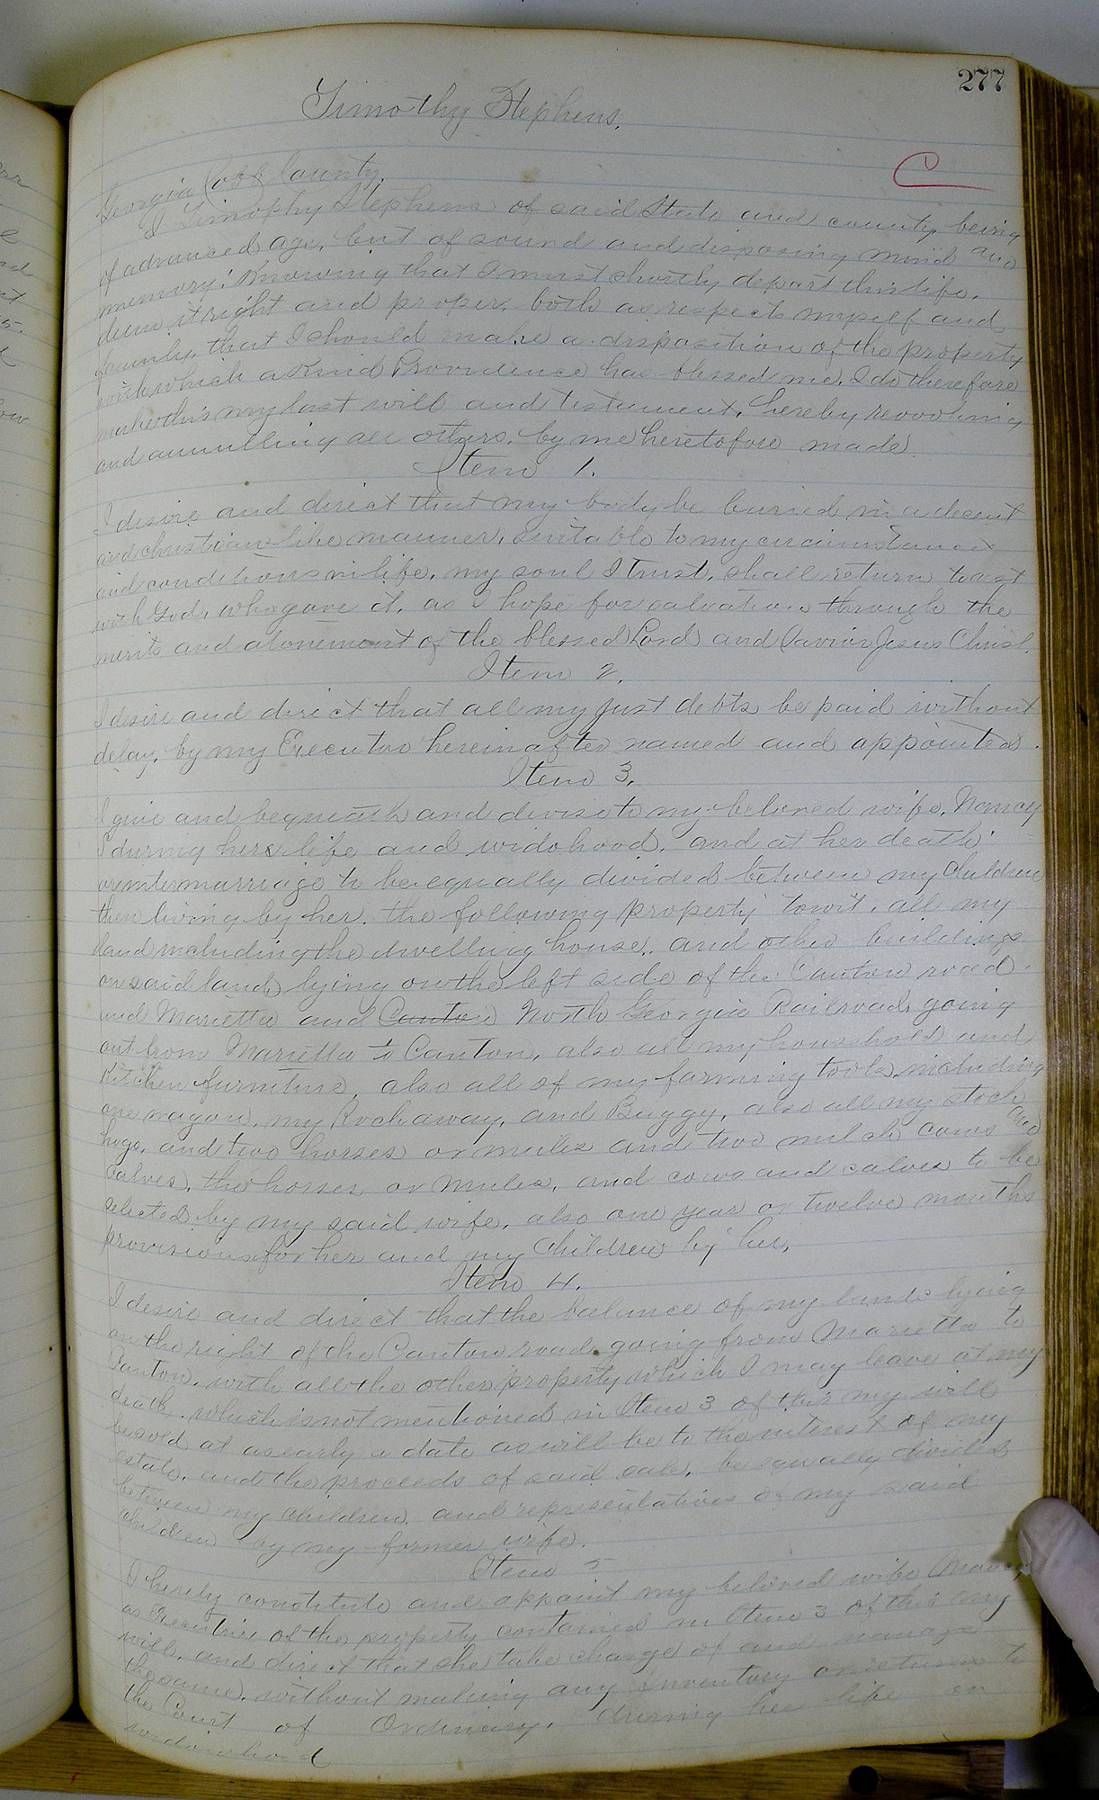 277
Timothy Stephens.
C
Georgia Cobb County.
I Timothy Stephens of said State and county, being
of advanced age, but of sound and disposing mind and
memory; Knowing that I must shortly depart this life,
deem it right and proper, both as respects myself and
family, that I should make a disposition of the property
with which a Kind Providence has blessed me, I do therefore
make this my last will and testament, hereby revooking
and annulling all others, by me heretofore made.
Item 1.
I desire and direct that my body be buried in a decent
and christian like manner, suitable to my circumstances
and conditions in life, my soul I trust, shall return to rest
with God, who gave it, as I hope for salvation through the
merits and atonement of the blessed Lord and Savior Jesus Christ.
Item 2.
I desire and direct that all my just debts be paid without
delay, by my Executor hereinafter named and appointed.
Item 3.
I give and bequeath and devise to my beloved wife, Nancy
during here life and widohood, and at her death
or intermarriage to be equally divided between my Children
then living by her, the following property towit, all my
land including the dwelling house, and other buildings
on said land, lying on the left side of the Canton road
and Marietta and Canton North Georgia Railroad, going
out from Marietta to Canton, also all my household and
Kitchen furniture, also all of my farming tools, including
one wagon, my Rockaway, and Buggy, also all my stock
hogs, and two horses or mules and two milch cows and
calves, the horses or mules, and cows and calves to be
selected by my said wife, also one year or twelve months
provisions for her and my Children by her.
Item 4.
I desire and direct that the balance of my lands lying
on the right of the Canton road going from Marietta to
Canton, with all the other property which I may leave at my
death, which is not mentioned in Item 3 of this my will
be sold at as early a date as will be to the interest of my
estate, and the proceeds of said sale, be equally divided
between my children, and representatives of my said
children by my former wife.
Item 5
I hereby constitute and appoint my beloved wife Nancy
as Executrix of the property contained in Item 3 of this my
will, and direct that she take charge of and manage
the same, without making any Inventory or returns to
the Court of Ordinary, during her life or
widowhood